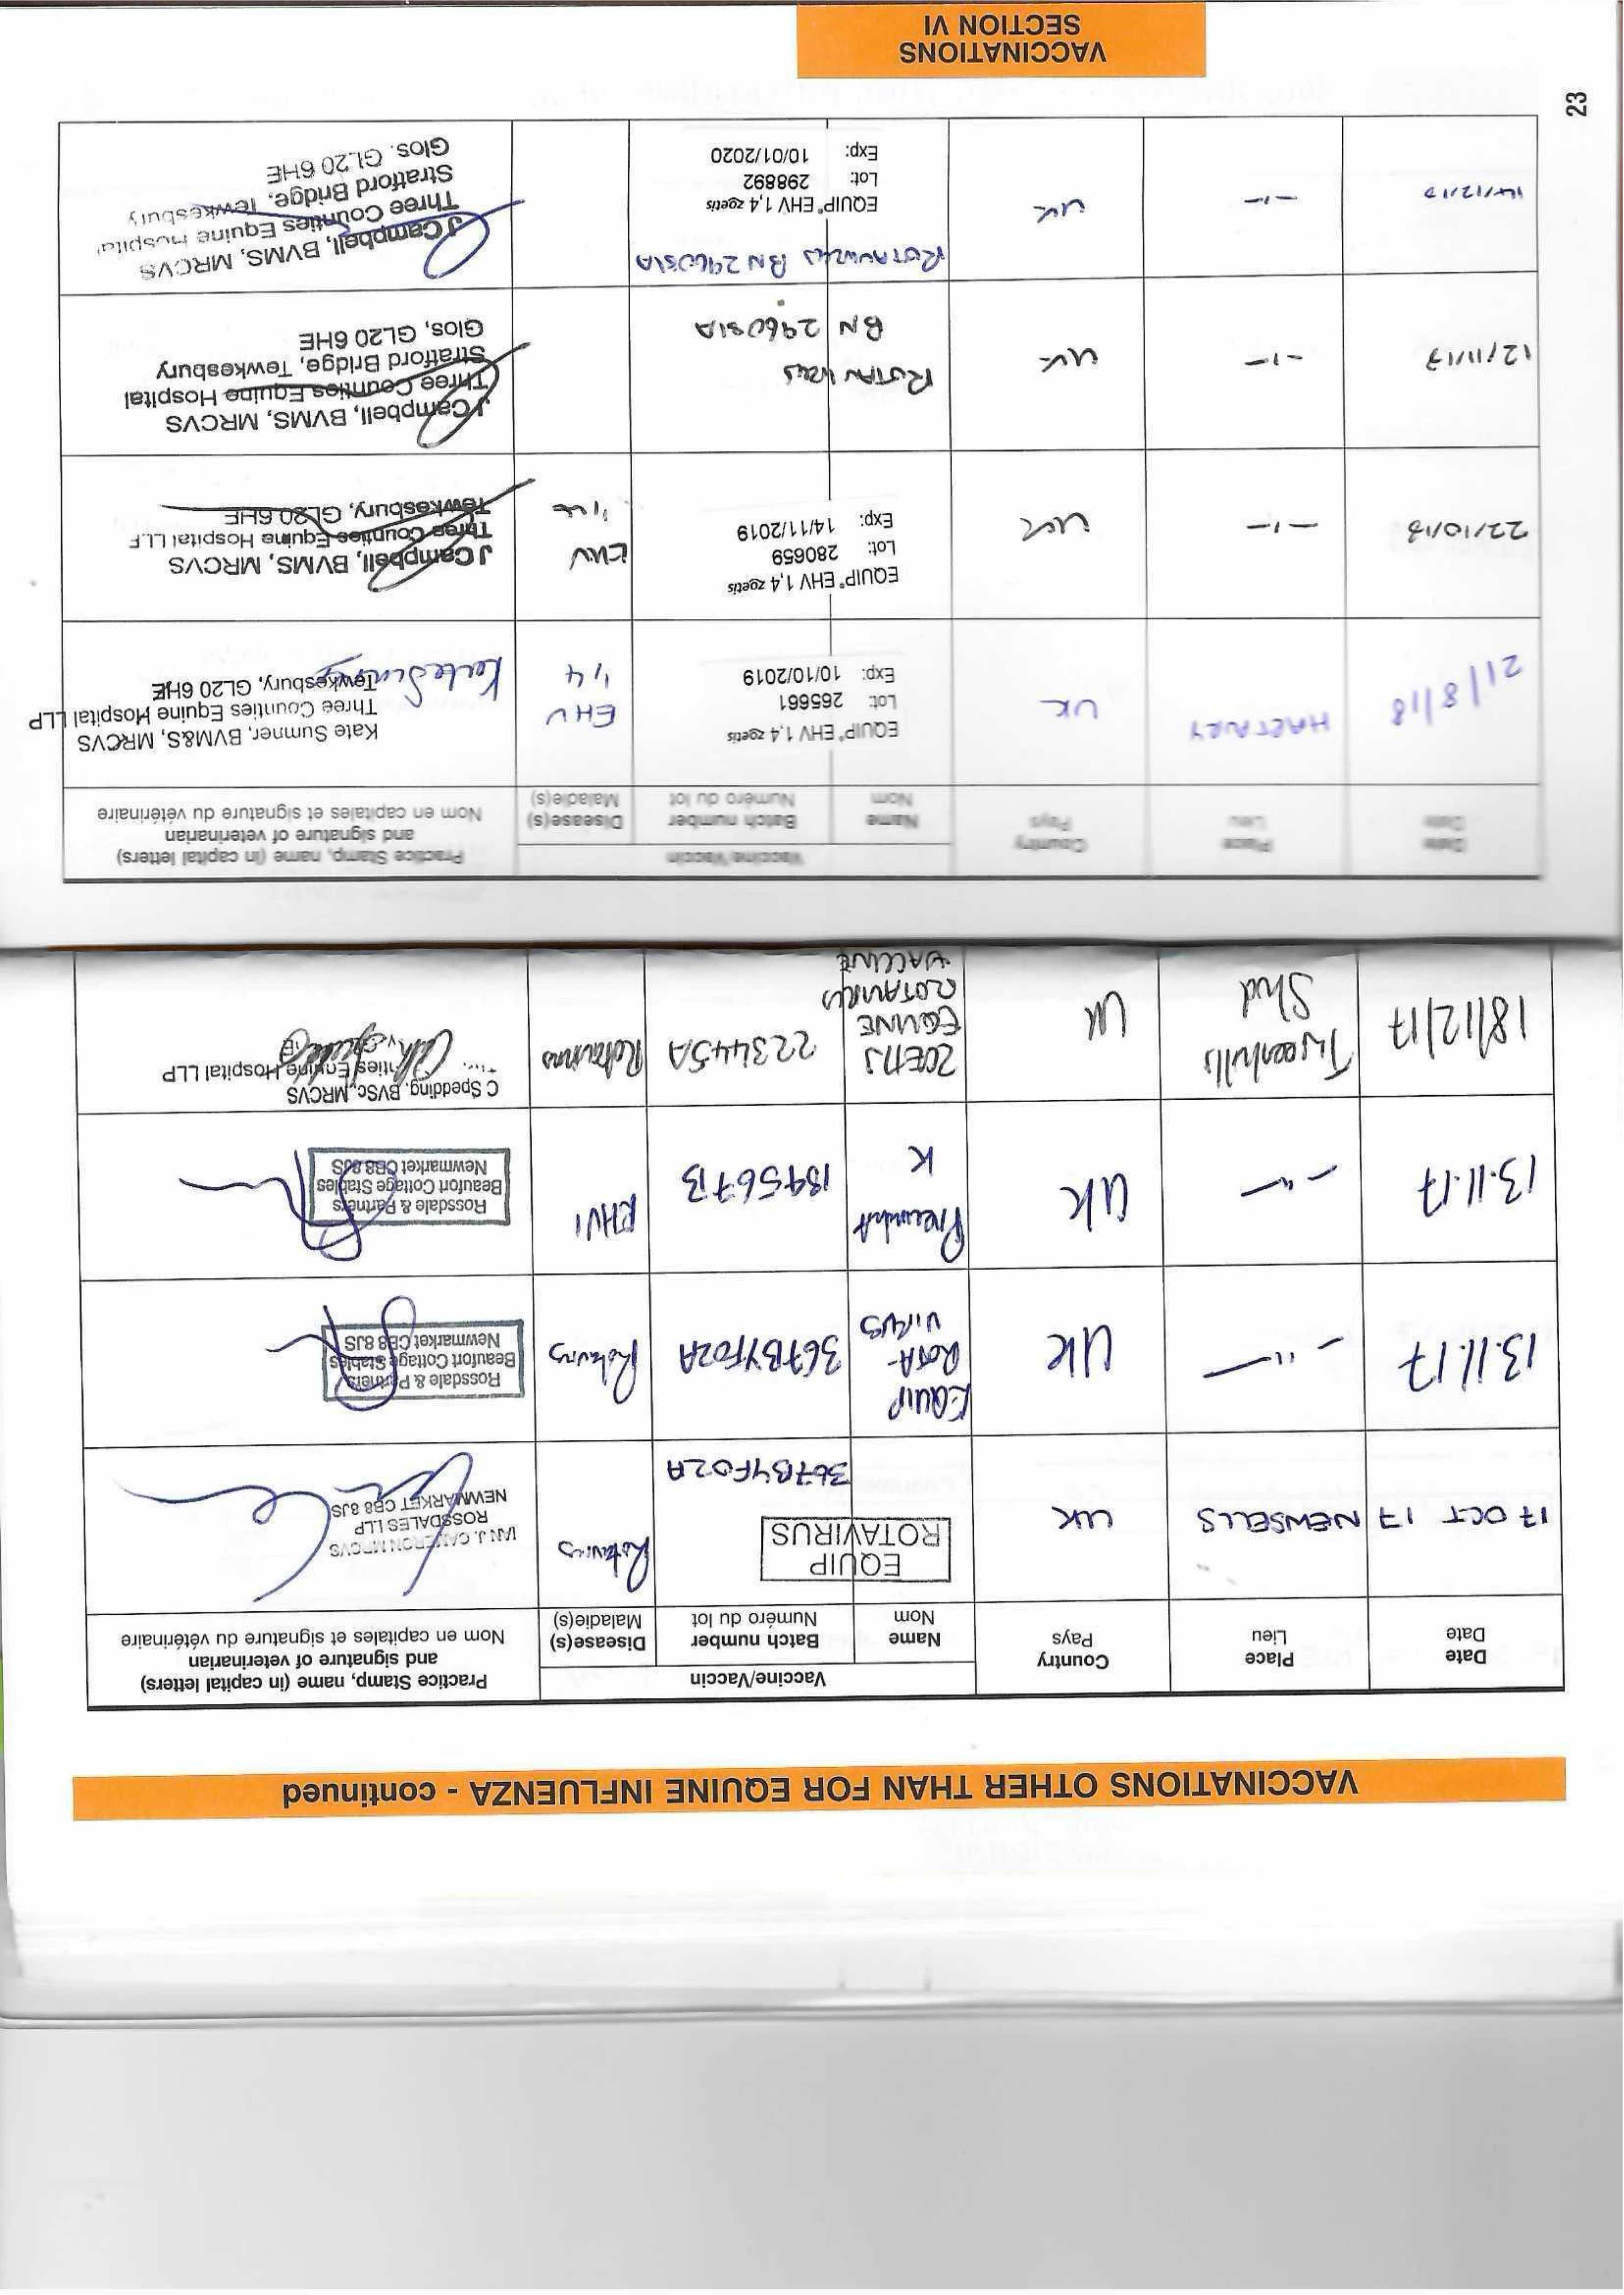 VACCINATIONS OTHER THAN FOR EQUINE INFLUENZA - continued
Date
Date
Place
Lieu
Country
Pays
Vaccine/Vaccin
Name
Nom
Batch number
Numéro du lot
Disease(s)
Maladie(s)
Practice Stamp, name (in capital letters)
and signature of veterinarian
Nom en capitales et signature du vétérinaire
17 OCT 17
NEWSELLS
UK
EQUIP
ROTAVIRUS
367BYF02A
Rotavirus
IAN J. CAMERON MRCVS
ROSSDALES LLP
NEWMARKET CB8 8JS
13.11.17
-"-
UK
EQUIP
ROTA-
VIRUS
367BYF02A
Rotavirus
Rossdale & Partners
Beaufort Cottage Stables
Newmarket CB8 8JS
13.11.17
-"-
UK
K
189567B
EHV1
Rossdale & Partners
Beaufort Cottage Stables
Newmarket CB8 8JS
18/12/17
Tweenhills
Stud
UK
ZOETIS
EQUINE
ROTAVIRUS
VACCINE
223445A
Rotavirus
C Spedding, BVSc, MRCVS
Equine Hospital LLP
Date
Date
Place
Lieu
Country
Pays
Vaccine/Vaccin
Name
Nom
Batch number
Numéro du lot
Disease(s)
Maladie(s)
Practice Stamp, name (in capital letters)
and signature of veterinarian
Nom en capitales et signature du vétérinaire
21/8/18
HARTPURY
UK
EQUIP® EHV 1,4 zoetis
Lot: 265661
Exp: 10/10/2019
EHV
1,4
Kate Sumner, BVM&S, MRCVS
Three Counties Equine Hospital LLP
Tewkesbury, GL20 6HE
Kate Sumner
22/10/18
-"-
UK
EQUIP® EHV 1,4 zoetis
Lot: 280659
Exp: 14/11/2019
EHV
J Campbell, BVMS, MRCVS
Three Counties Equine Hospital LLP
Tewkesbury, GL20 6HE
-"-
UK
ROTAVIRUS
BN 296051A
J Campbell, BVMS, MRCVS
Three Counties Equine Hospital
Stratford Bridge, Tewkesbury
Glos, GL20 6HE
-"-
UK
ROTAVIRUS BN 296051A
EQUIP® EHV 1,4 zoetis
Lot: 298892
Exp: 10/01/2020
J Campbell, BVMS, MRCVS
Three Counties Equine Hospital
Stratford Bridge, Tewkesbury
Glos. GL20 6HE
23
VACCINATIONS
SECTION VI